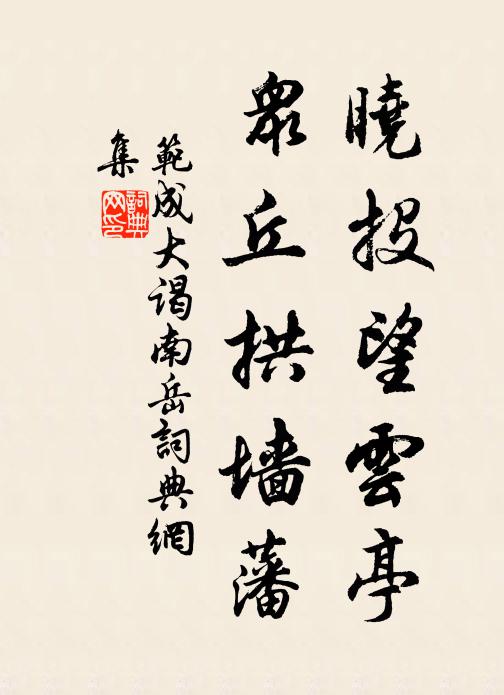 曉投望雲亭
眾丘拱墻藩
範成大謁南岳詞典網
集
詞典網印